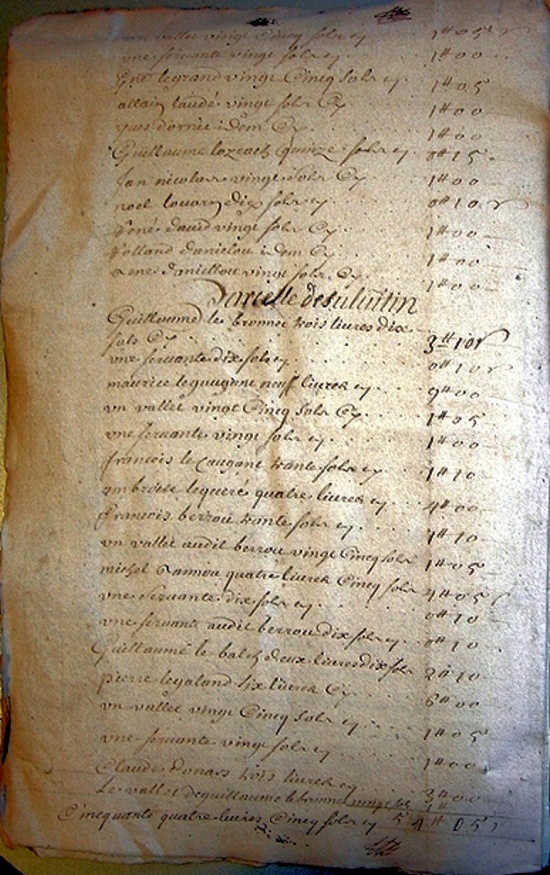 un vallet vingt Cinq sols cy 1# 05
une servante vingt sols cy 1# 00
legrand vingt Cinq sols cy 1# 05
allain laudé vingt sols Cy 1# 00
yues dorniee idem Cy 1# 00
Guillaume lozeach quinze sols cy 0# 15
Jan nicolas vingt sols Cy 1# 00
noel louarn dix sols cy 0# 10
rené dauid vingt sols Cy 1# 00
Rolland danielou idem Cy 1# 00
daniellou vingt sols Cy 1# 00
Guillaume le bronnec trois liures dix
sols Cy 3# 10
une servante dix sols cy 0# 10
maurice leguugane neuf liures cy 9# 00
un vallet vingt Cinq sols Cy 1# 05
une servante vingt sols cy 1# 00
francois le Caugant trante sols cy 1# 10
ambroise lequeré quatre liures cy 4# 00
francois berrou trante sols cy 1# 10
un vallet audit berrou vingt Cinq sols 1# 05
michel quatre liures Cinq sols 4# 05
une servante dix sols cy 0# 10
une servante audit berrou dix sols cy 0# 10
Guillaume le balch deux liures dix sols 2# 10
pierre legaland six liures Cy 6# 00
un vallet vingt Cinq sols cy 1# 05
une servante vingt sols cy 1# 00
Claude donars trois liures cy 3# 00
Le vallet de guillaume le bronnec vingt sols 1#
Cincquante quatre liures Cinq sols cy 54# 05